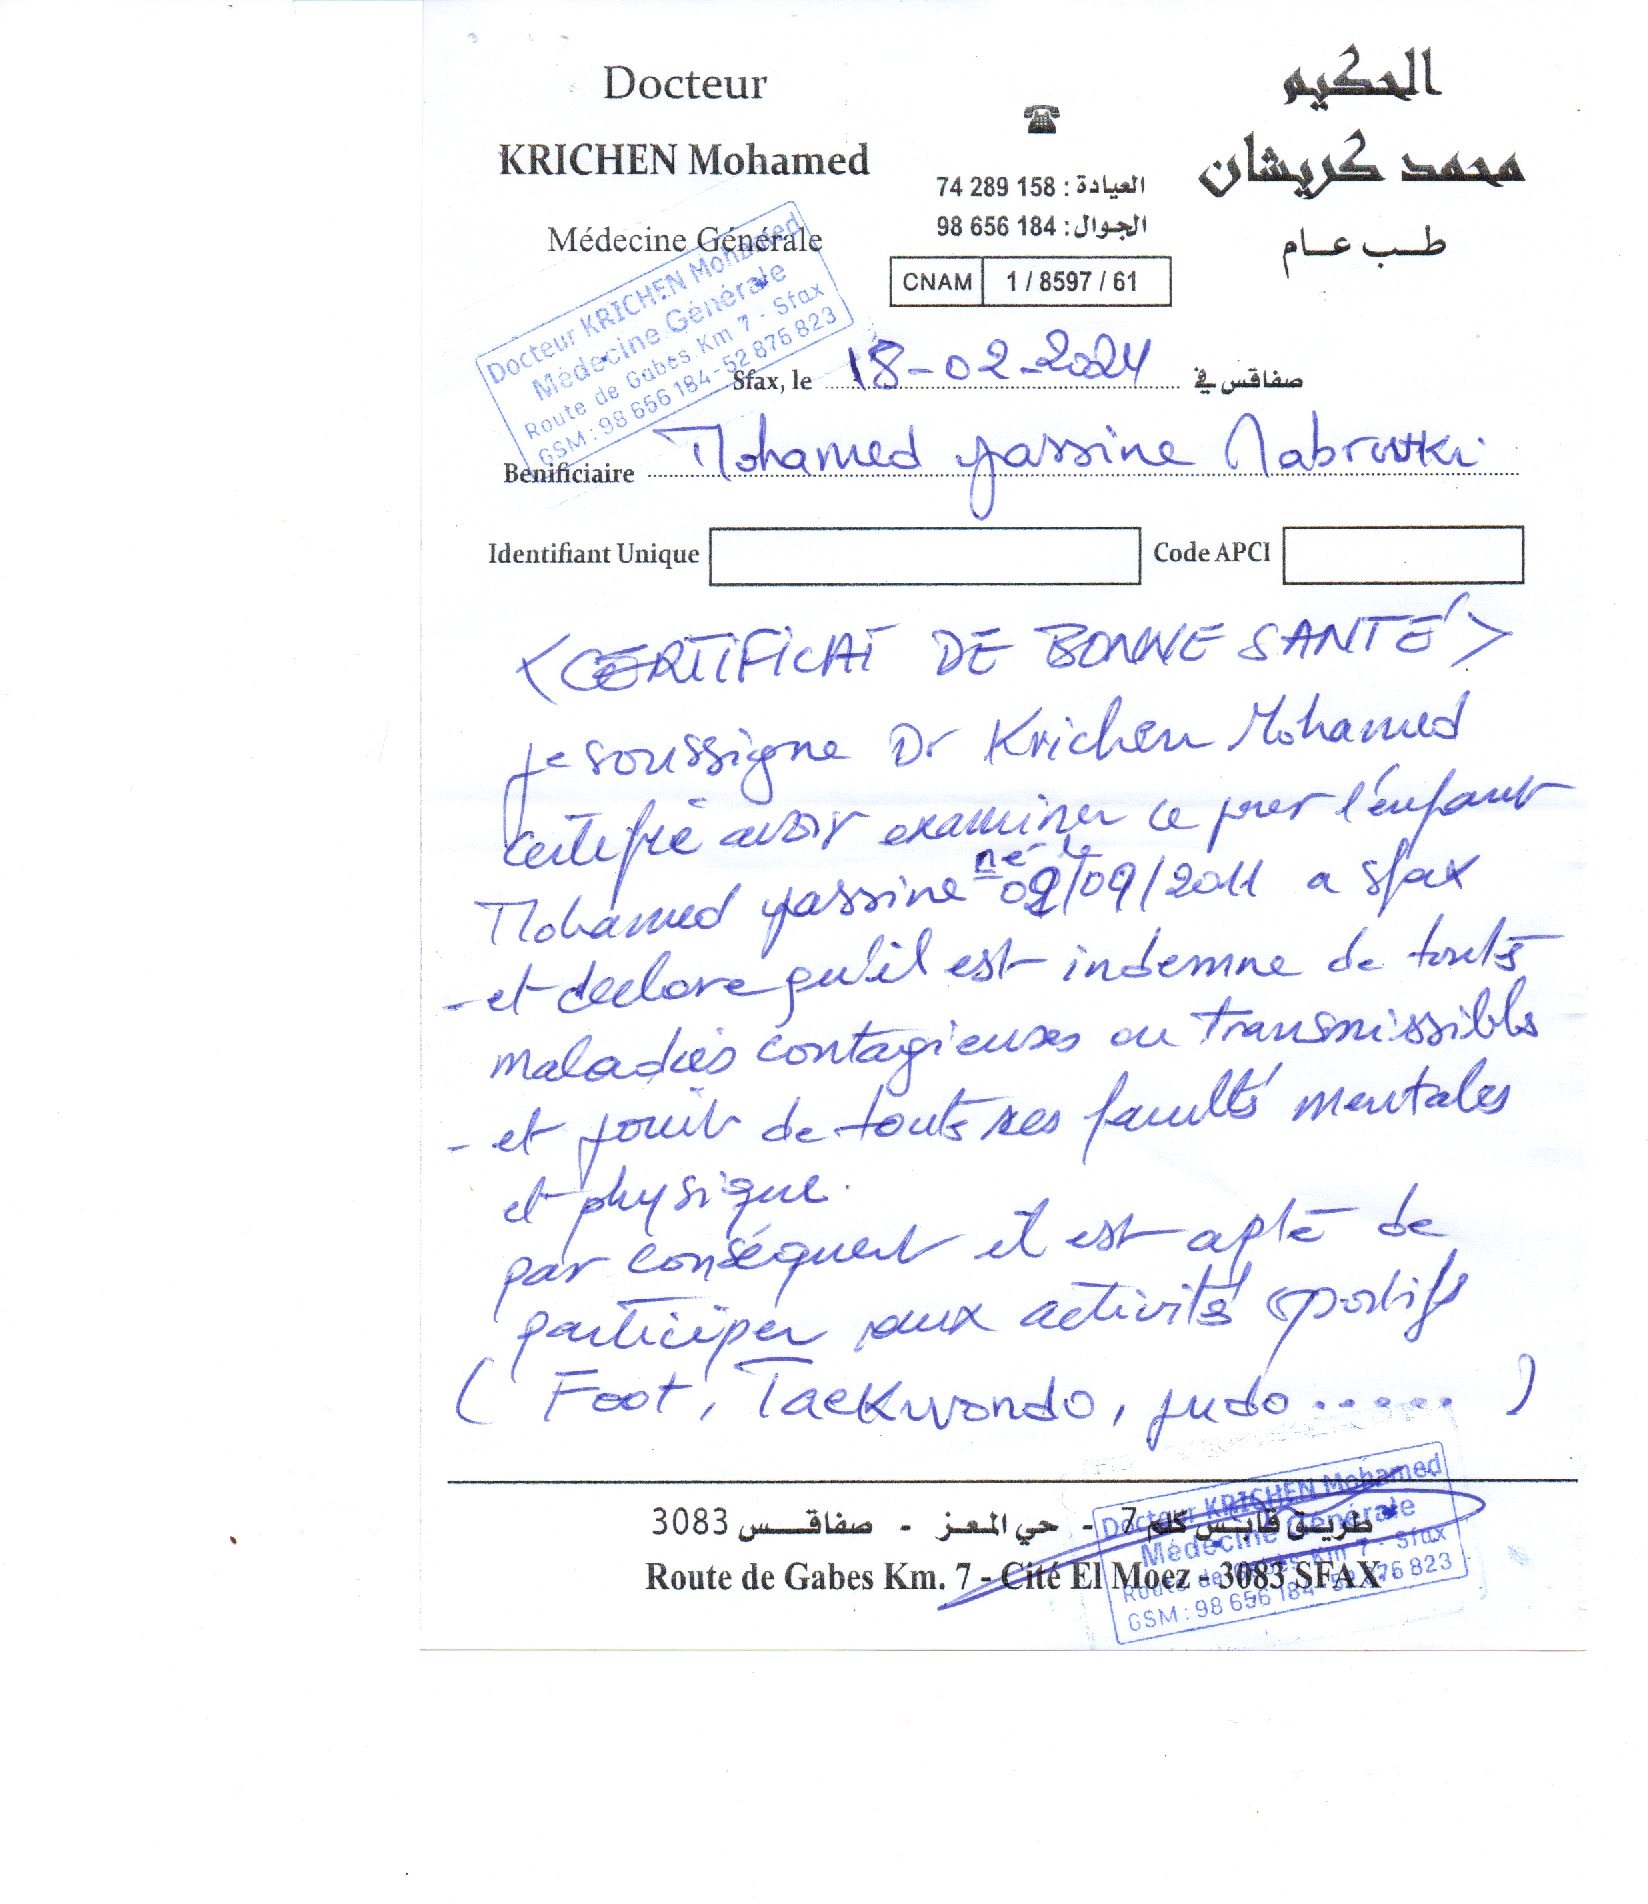 Docteur
KRICHEN Mohamed
Médecine Générale
الحكيم
محمد كريشان
طب عام
العيادة : 74 289 158
الجوال : 98 656 184
CNAM 1 / 8597 / 61
Docteur KRICHEN Mohamed
Médecine Générale
Route de Gabes Km 7 - Sfax
GSM : 98 656 184 - 52 876 823
Sfax, le 18-02-2024 صفاقس في
Benificiaire Mohamed yassine Mabrouki
Identifiant Unique
Code APCI
<CERTIFICAT DE BONNE SANTÉ>
je soussigne Dr Krichen Mohamed
certifie avoir examiner ce jour l'enfant
né le
Mohamed yassine /09/2011 a sfax
- et declare qu'il est indemne de touts
maladies contagieuses ou transmissibls
- et jouit de touts ses facultés mentales
et physique.
par conséquent il est apte de
participer aux activités sportifs
( Foot, Taekwondo, judo ...... )
طريق قابس كلم 7 - حي المعز - صفاقس 3083
Route de Gabes Km. 7 - Cité El Moez - 3083 SFAX
Docteur KRICHEN Mohamed
Médecine Générale
Route de Gabes Km 7 - Sfax
GSM : 98 656 184 - 52 876 823